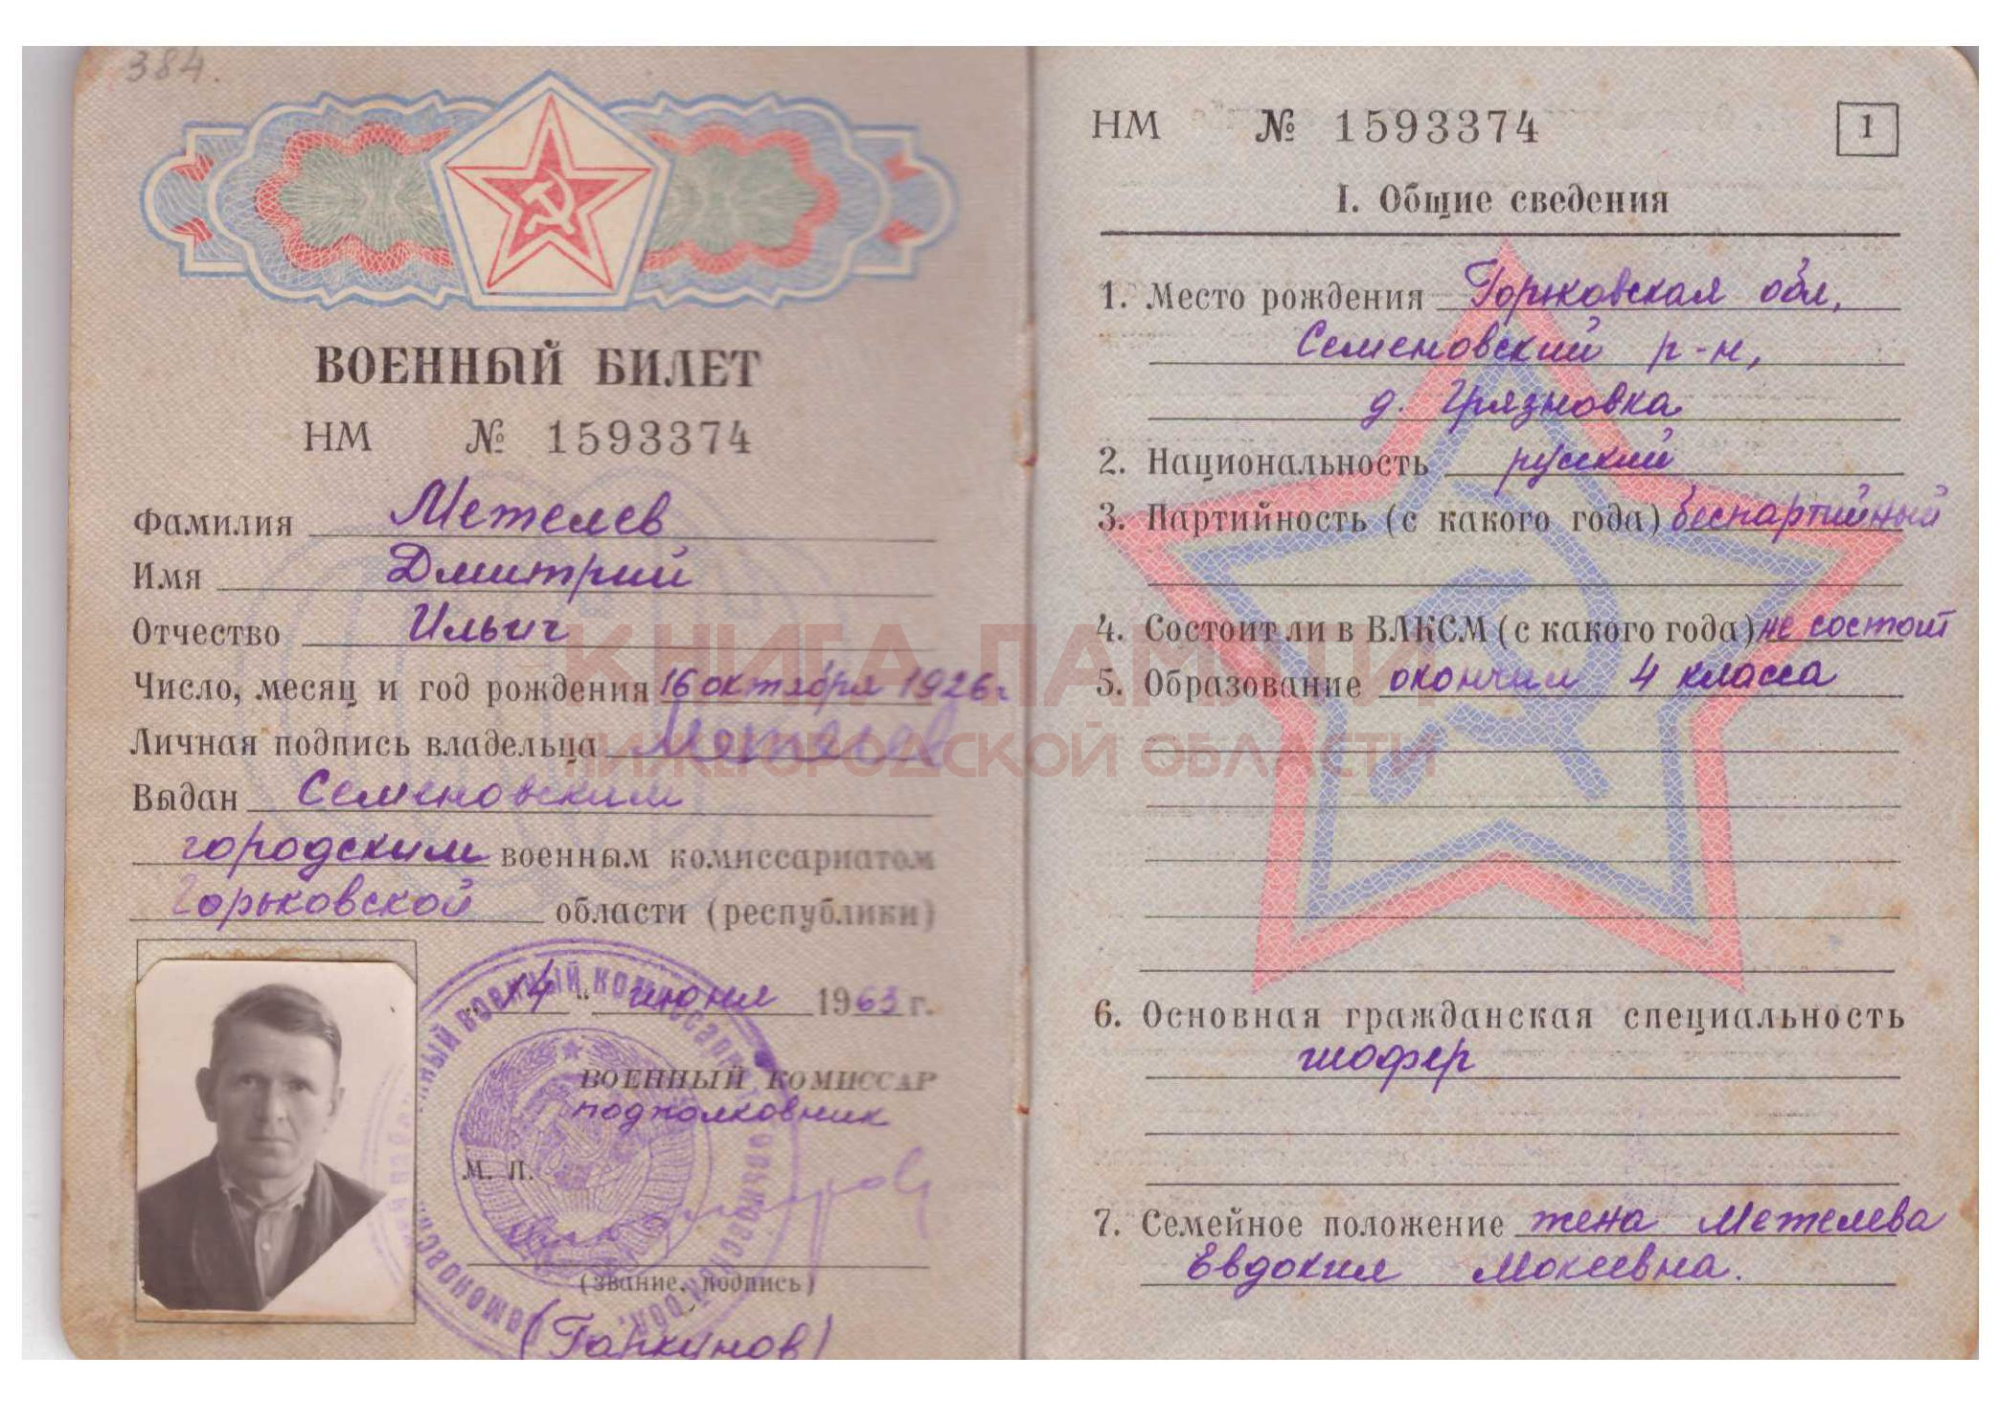 384.
ВОЕННЫЙ БИЛЕТ
НМ № 1593374
Фамилия Метелев
Имя Дмитрий
Отчество Ильич
Число, месяц и год рождения 16 октября 1926 г
Личная подпись владельца Метелев
Выдан Семеновским
городским военным комиссариатом
Горьковской области (республики)
„14“ июня 1963 г.
ВОЕННЫЙ КОМИССАР
подполковник
М. П.
(звание, подпись)
(Гаркунов)
НМ № 1593374
1
I. Общие сведения
1. Место рождения Горьковская обл,
Семеновский р-н,
д. Грязновка
2. Национальность русский
3. Партийность (с какого года) беспартийный
4. Состоит ли в ВЛКСМ (с какого года) не состоит
5. Образование окончил 4 класса
6. Основная гражданская специальность
шофер
7. Семейное положение жена Метелева
Евдокия Мокеевна.
КНИГА ПАМЯТИ
НИЖЕГОРОДСКОЙ ОБЛАСТИ